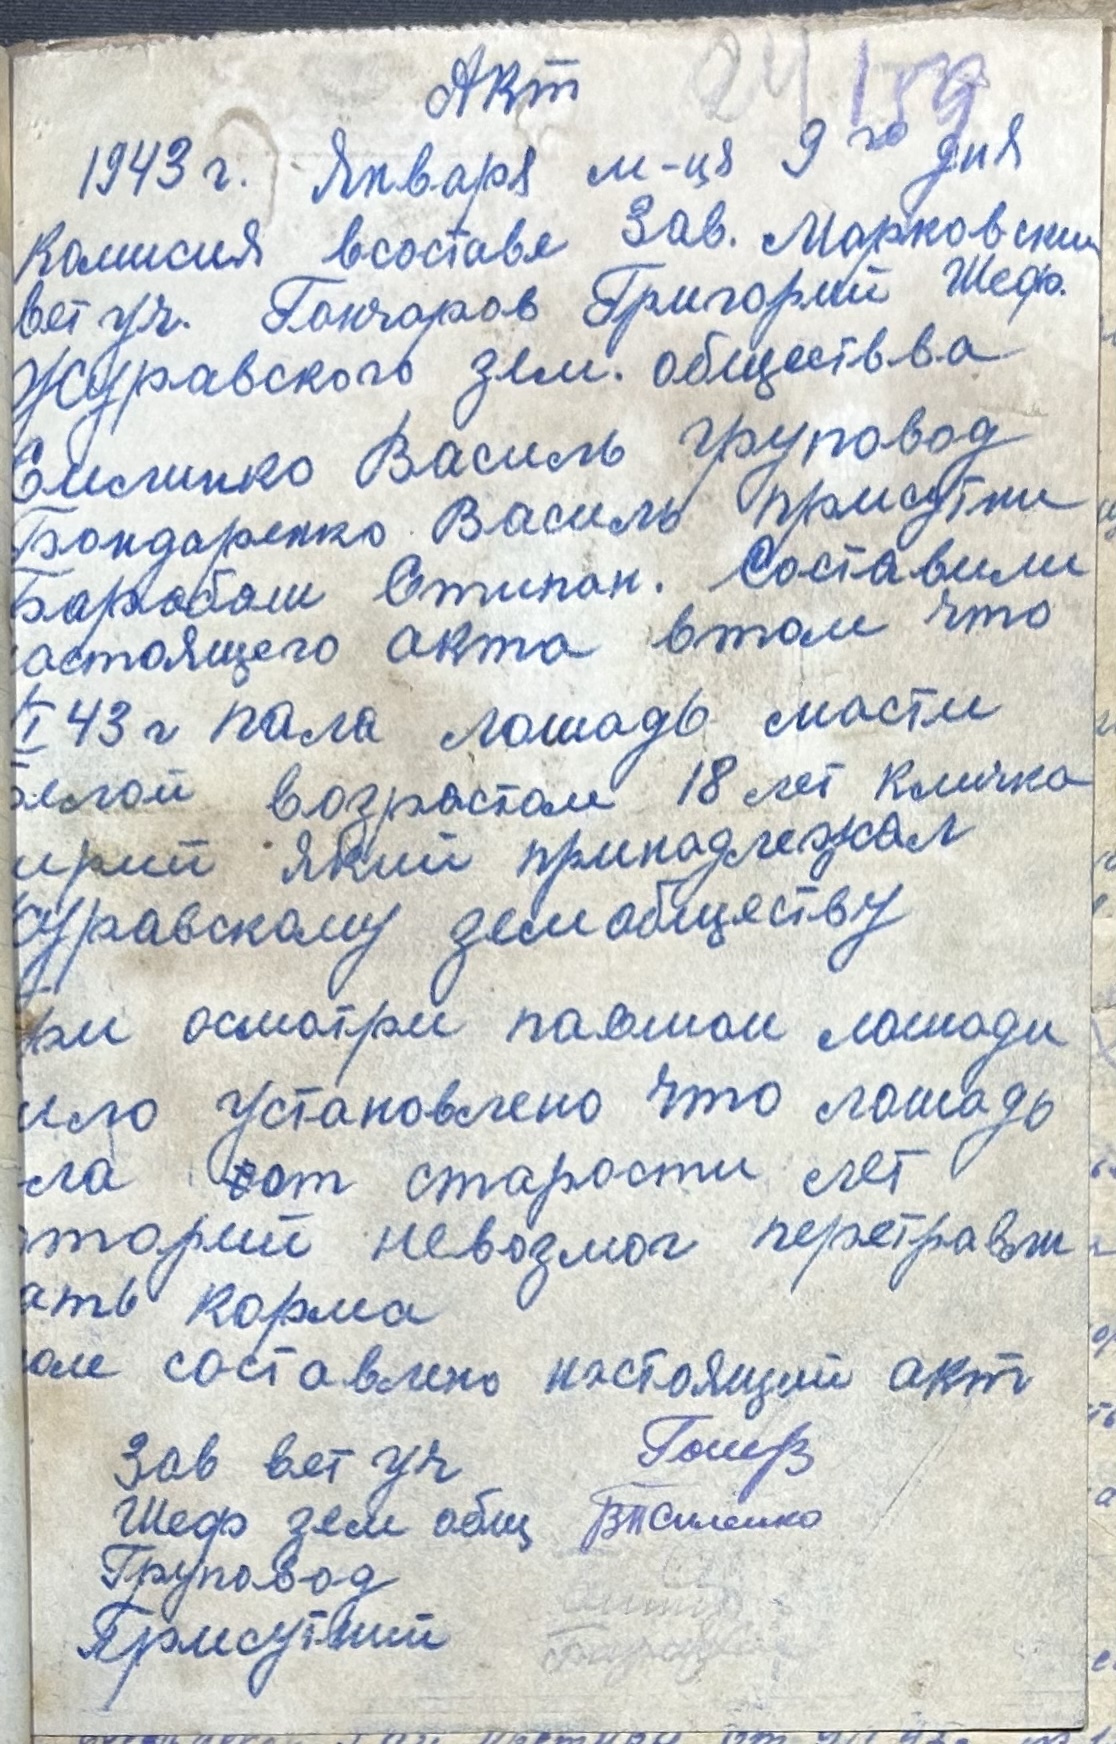 Акт
24 159
1943 г. Января м-ця 9го дня
Комисия всоставе Зав. Марковский
вет уч. Гончаров Григорий Шеф.
Журавского зем. обществва
Силинко Василь груповод
Бондаренко Василь присутни
Барабаш Стипан. Составили
астоящего акта втом что
I 43 г пала лошадь масти
белой возрастом 18 лет кличка
ирий який принадлежал
журавскому земобществу
ри осмотри павшои лошади
ило установлено что лошадь
ла от старости лет
торий невозмог перетравли
ать корма
ом составлено настоящий акт
Зав вет уч
Шеф зем общ
Груповод
Присутний